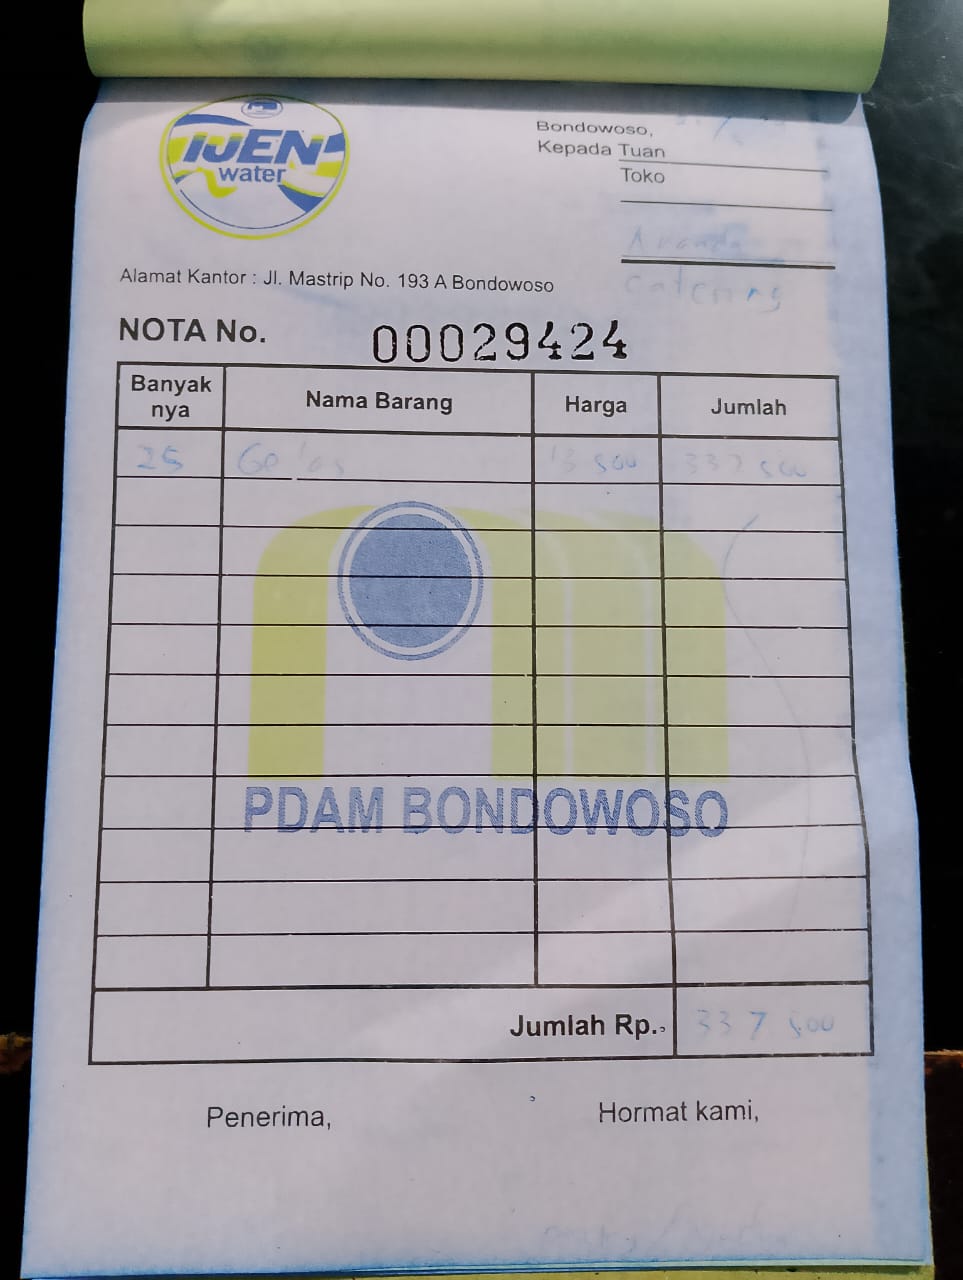 IJEN
water
Bondowoso,
Kepada Tuan
Toko
catering
Alamat Kantor : Jl. Mastrip No. 193 A Bondowoso
NOTA No. 00029424
Banyak nya Nama Barang Harga Jumlah
25 Gelas 13 500 337 500
PDAM BONDOWOSO
Jumlah Rp. 337 500
Penerima, Hormat kami,